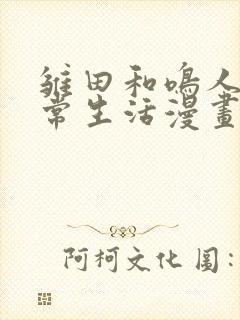 雏田和鳴人
常生活漫畫
阿柯文化圖: